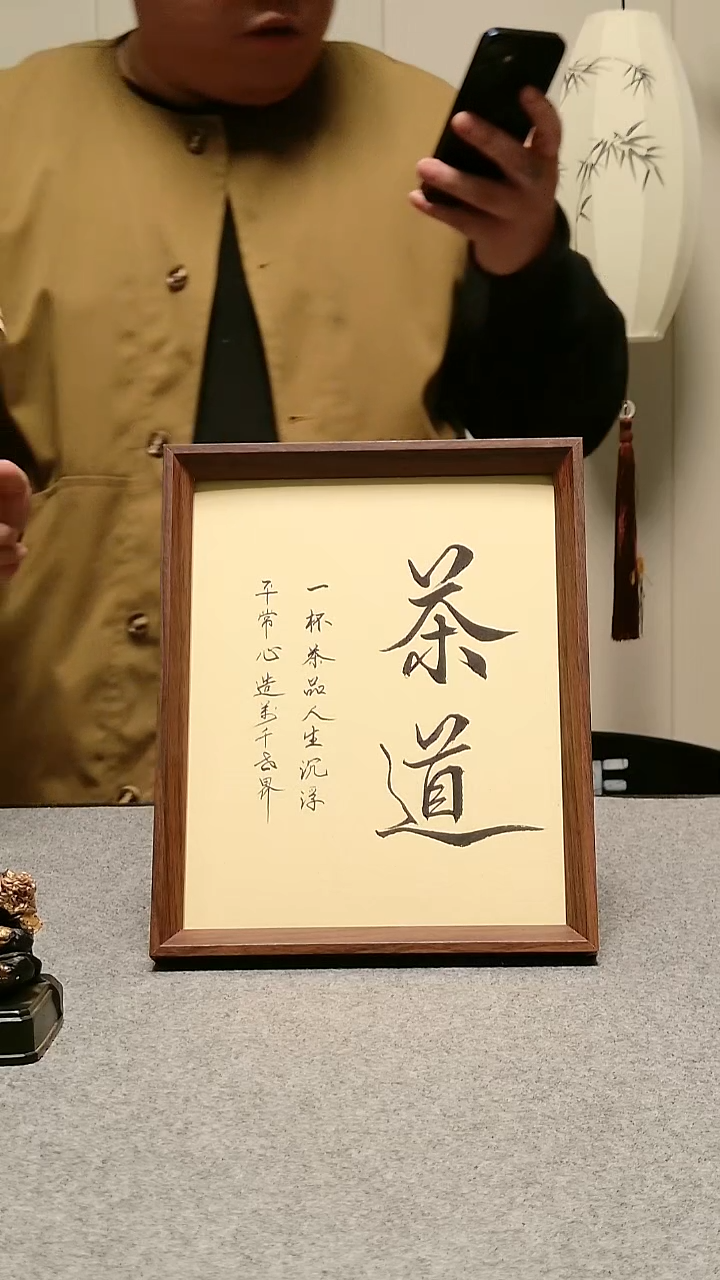 茶道
一杯茶品人生沉浮
平常心造万千世界